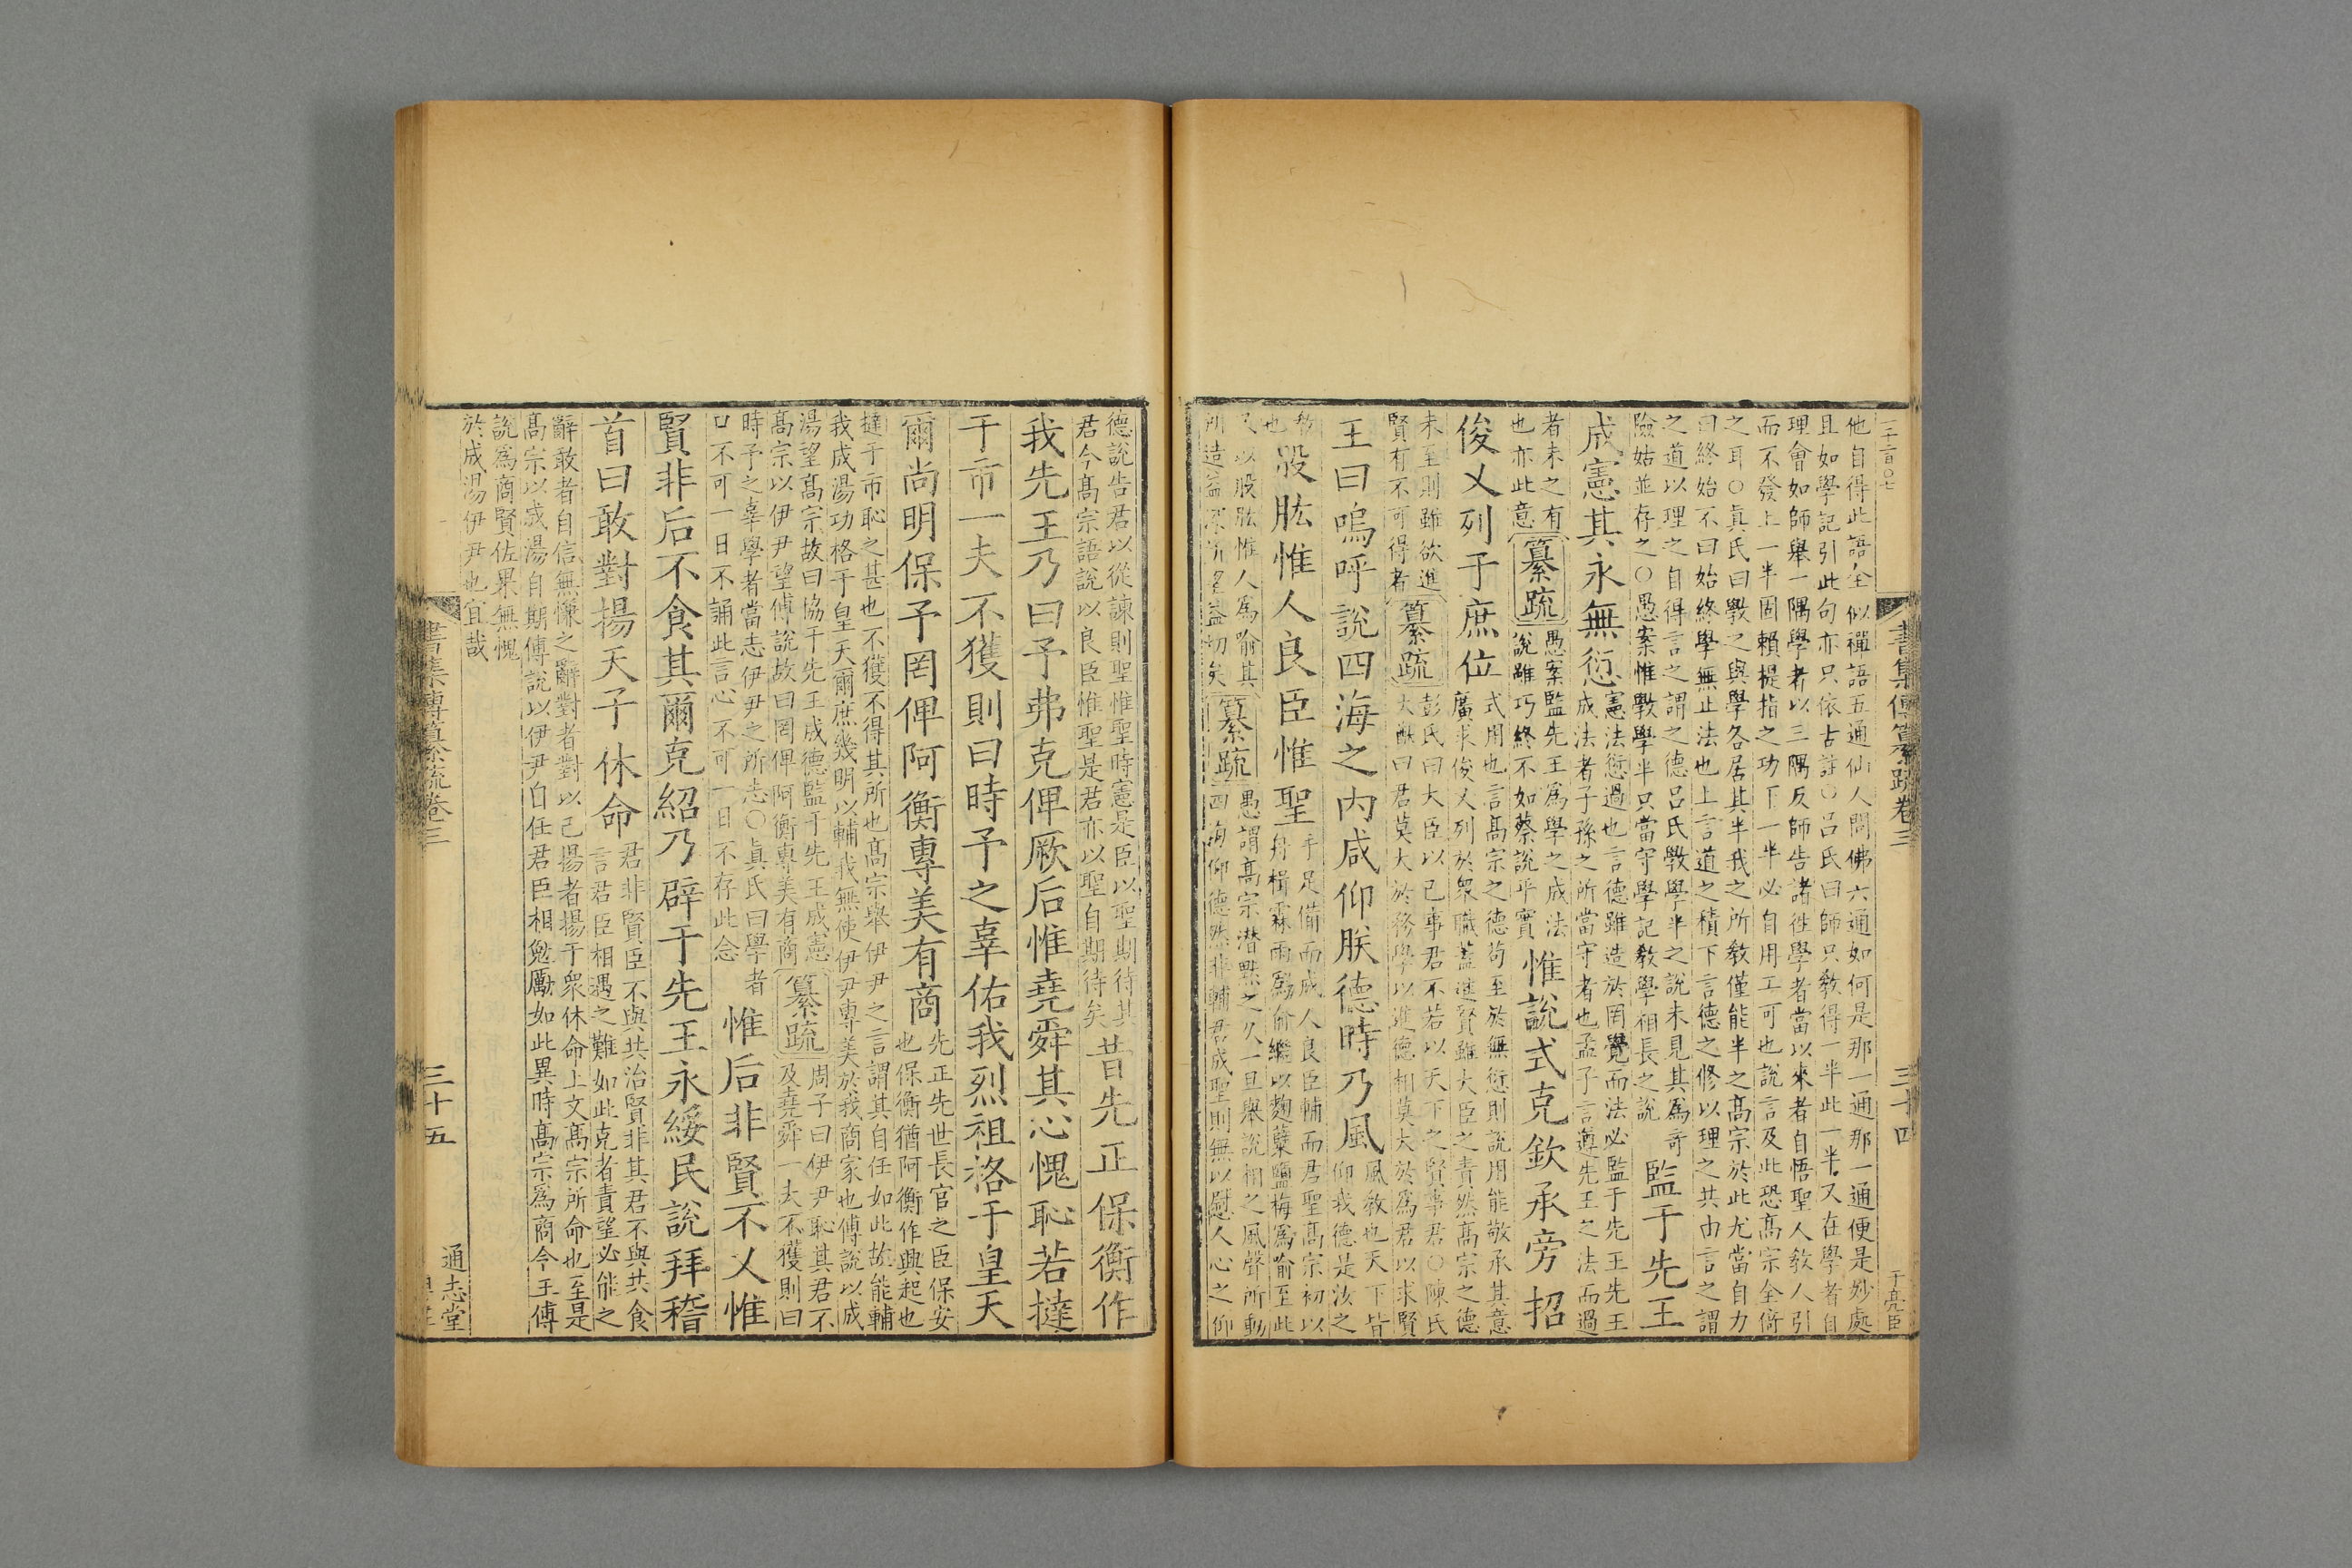 他自得此語全似禪語五通仙人問佛六通如何是那一通那一通便是妙處
且如學記引此句亦只依古註○呂氏曰師只敎得一半此一半又在學者自
理會如師舉一隅學者以三隅反師告諸徃學者當以來者自悟聖人敎人引
而不發上一半固賴提指之功下一半必自用工可也說言及此恐高宗全倚
之耳○眞氏曰斆之與學各居其半我之所敎僅能半之高宗於此尤當自力
曰終始不曰始終學無止法也上言道之積下言德之修以理之共由言之謂
之道以理之自得言之謂之德呂氏斆學半之說未見其爲奇
險姑並存之○愚案惟斆學半只當守學記敎學相長之說
監于先王
成憲其永無愆
憲法愆過也言德雖造於罔覺而法必監于先王先王
成法者子孫之所當守者也孟子言遵先王之法而過
者未之有
也亦此意
纂疏
愚案監先王爲學之成法
說雖巧終不如蔡說平實
惟說式克欽承旁招
俊乂列于庶位
式用也言高宗之德苟至於無愆則說用能敬承其意
廣求俊乂列於衆職蓋進賢雖大臣之責然高宗之德
未至則雖欲進
賢有不可得者
纂疏
彭氏曰大臣以己事君不若以天下之賢事君○陳氏
大猷曰君莫大於務學以進德相莫大於爲君以求賢
王曰嗚呼說四海之內咸仰朕德時乃風
風敎也天下皆
仰我德是汝之
敎
也
股肱惟人良臣惟聖
手足備而成人良臣輔而君聖高宗初以
舟楫霖雨爲喻繼以麴糵鹽梅爲喻至此
又以股肱惟人爲喻其
所造益深所望益切矣
纂疏
愚謂高宗潛黙之久一旦舉說相之風聲所動
四海仰德然非輔君成聖則無以慰人心之仰
書集傳纂疏卷三
三十四
于亮臣
德說告君以從諫則聖惟聖時憲是臣以聖期待其
君今高宗語說以良臣惟聖是君亦以聖自期待矣
昔先正保衡作
我先王乃曰予弗克俾厥后惟堯舜其心愧恥若撻
于市一夫不獲則曰時予之辜佑我烈祖格于皇天
爾尚明保予罔俾阿衡專美有商
先正先世長官之臣保安
也保衡猶阿衡作興起也
撻于市恥之甚也不獲不得其所也高宗舉伊尹之言謂其自任如此故能輔
我成湯功格于皇天爾庶幾明以輔我無使伊尹專美於我商家也傅說以成
湯望高宗故曰協于先王成德監于先王成憲
高宗以伊尹望傅說故曰罔俾阿衡專美有商
纂疏
周子曰伊尹恥其君不
及堯舜一夫不獲則曰
時予之辜學者當志伊尹之所志○眞氏曰學者
口不可一日不誦此言心不可一日不存此念
惟后非賢不乂惟
賢非后不食其爾克紹乃辟于先王永綏民說拜稽
首曰敢對揚天子休命
君非賢臣不與共治賢非其君不與共食
言君臣相遇之難如此克者責望必能之
辭敢者自信無慊之辭對者對以己揚者揚于衆休命上文高宗所命也至是
高宗以成湯自期傅說以伊尹自任君臣相勉勵如此異時高宗爲商令王傅
說爲商賢佐果無愧
於成湯伊尹也宜哉
書集傳纂疏卷三
三十五
通志堂